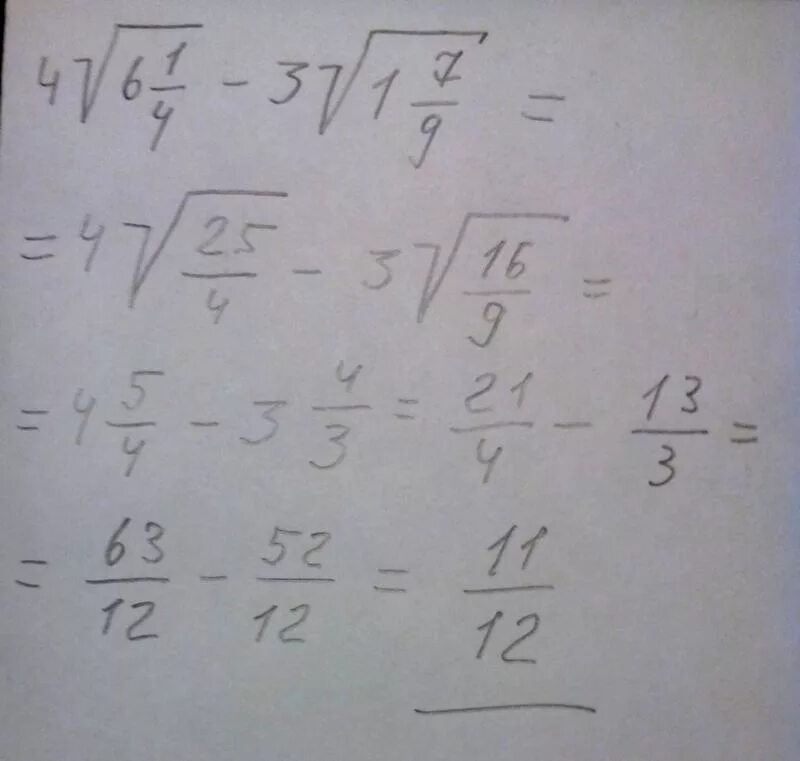 4√(6 1/4) - 3√(1 7/9) =
= 4√(25/4) - 3√(16/9) =
= 4 5/4 - 3 4/3 = 21/4 - 13/3 =
= 63/12 - 52/12 = 11/12